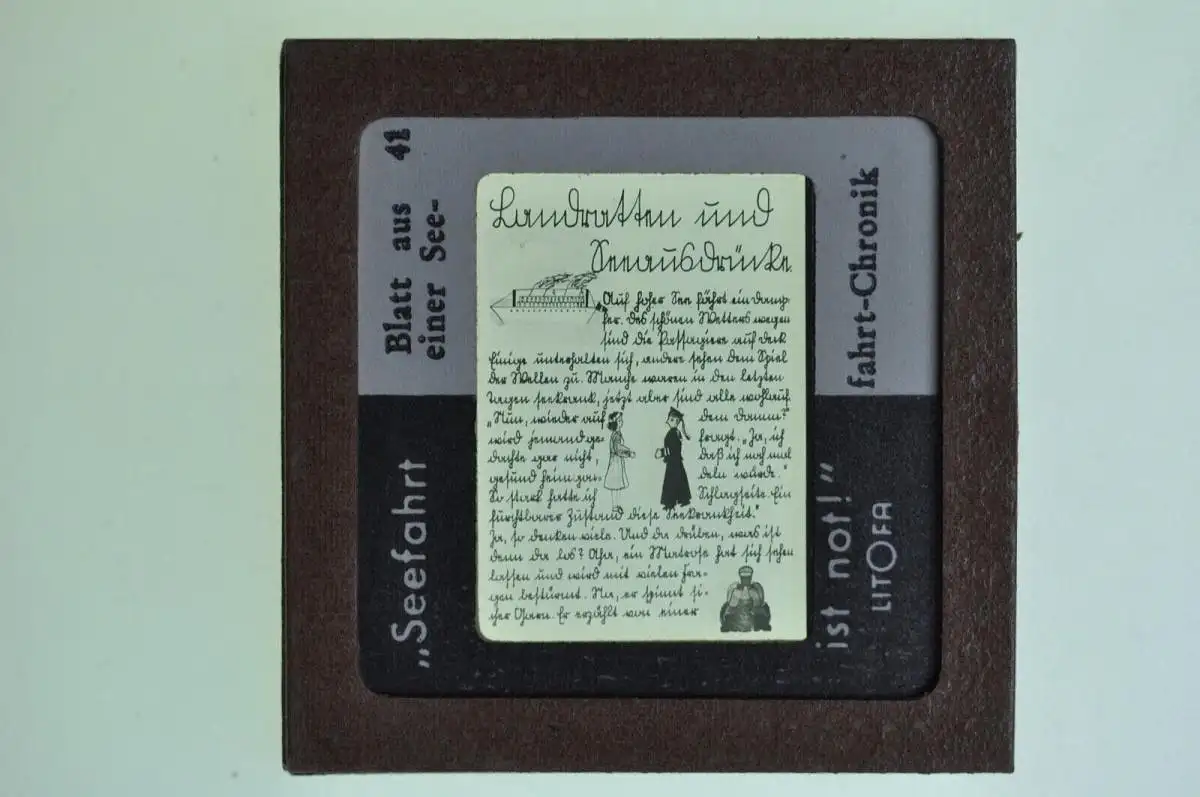 Blatt aus 41
einer See-
fahrt-Chronik
„Seefahrt
ist not!“
LITOFA
Landratten und
Seeausdrücke.
Auf hoher See fährt ein Damp-
fer. Des schönen Wetters wegen
sind die Passagiere auf Deck
Einige unterhalten sich, andere sehen dem Spiel
der Wellen zu. Manche waren in den letzten
Tagen seekrank, jetzt aber sind alle wohlauf.
„Nun, wieder auf dem Damm?“
wird jemand ge- fragt. „Ja, ich
dachte gar nicht, daß ich noch mal
gesund heim gon- deln würde.“
So stark hatte ich Schlagseite. Ein
furchtbarer Zustand diese Seekrankheit.“
Ja, so denken viele. Und da drüben, was ist
denn da los? Aha, ein Matrose hat sich sehen
lassen und wird mit vielen Fra-
gen bestürmt. Na, er spinnt si-
cher Garn. Er erzählt von einer